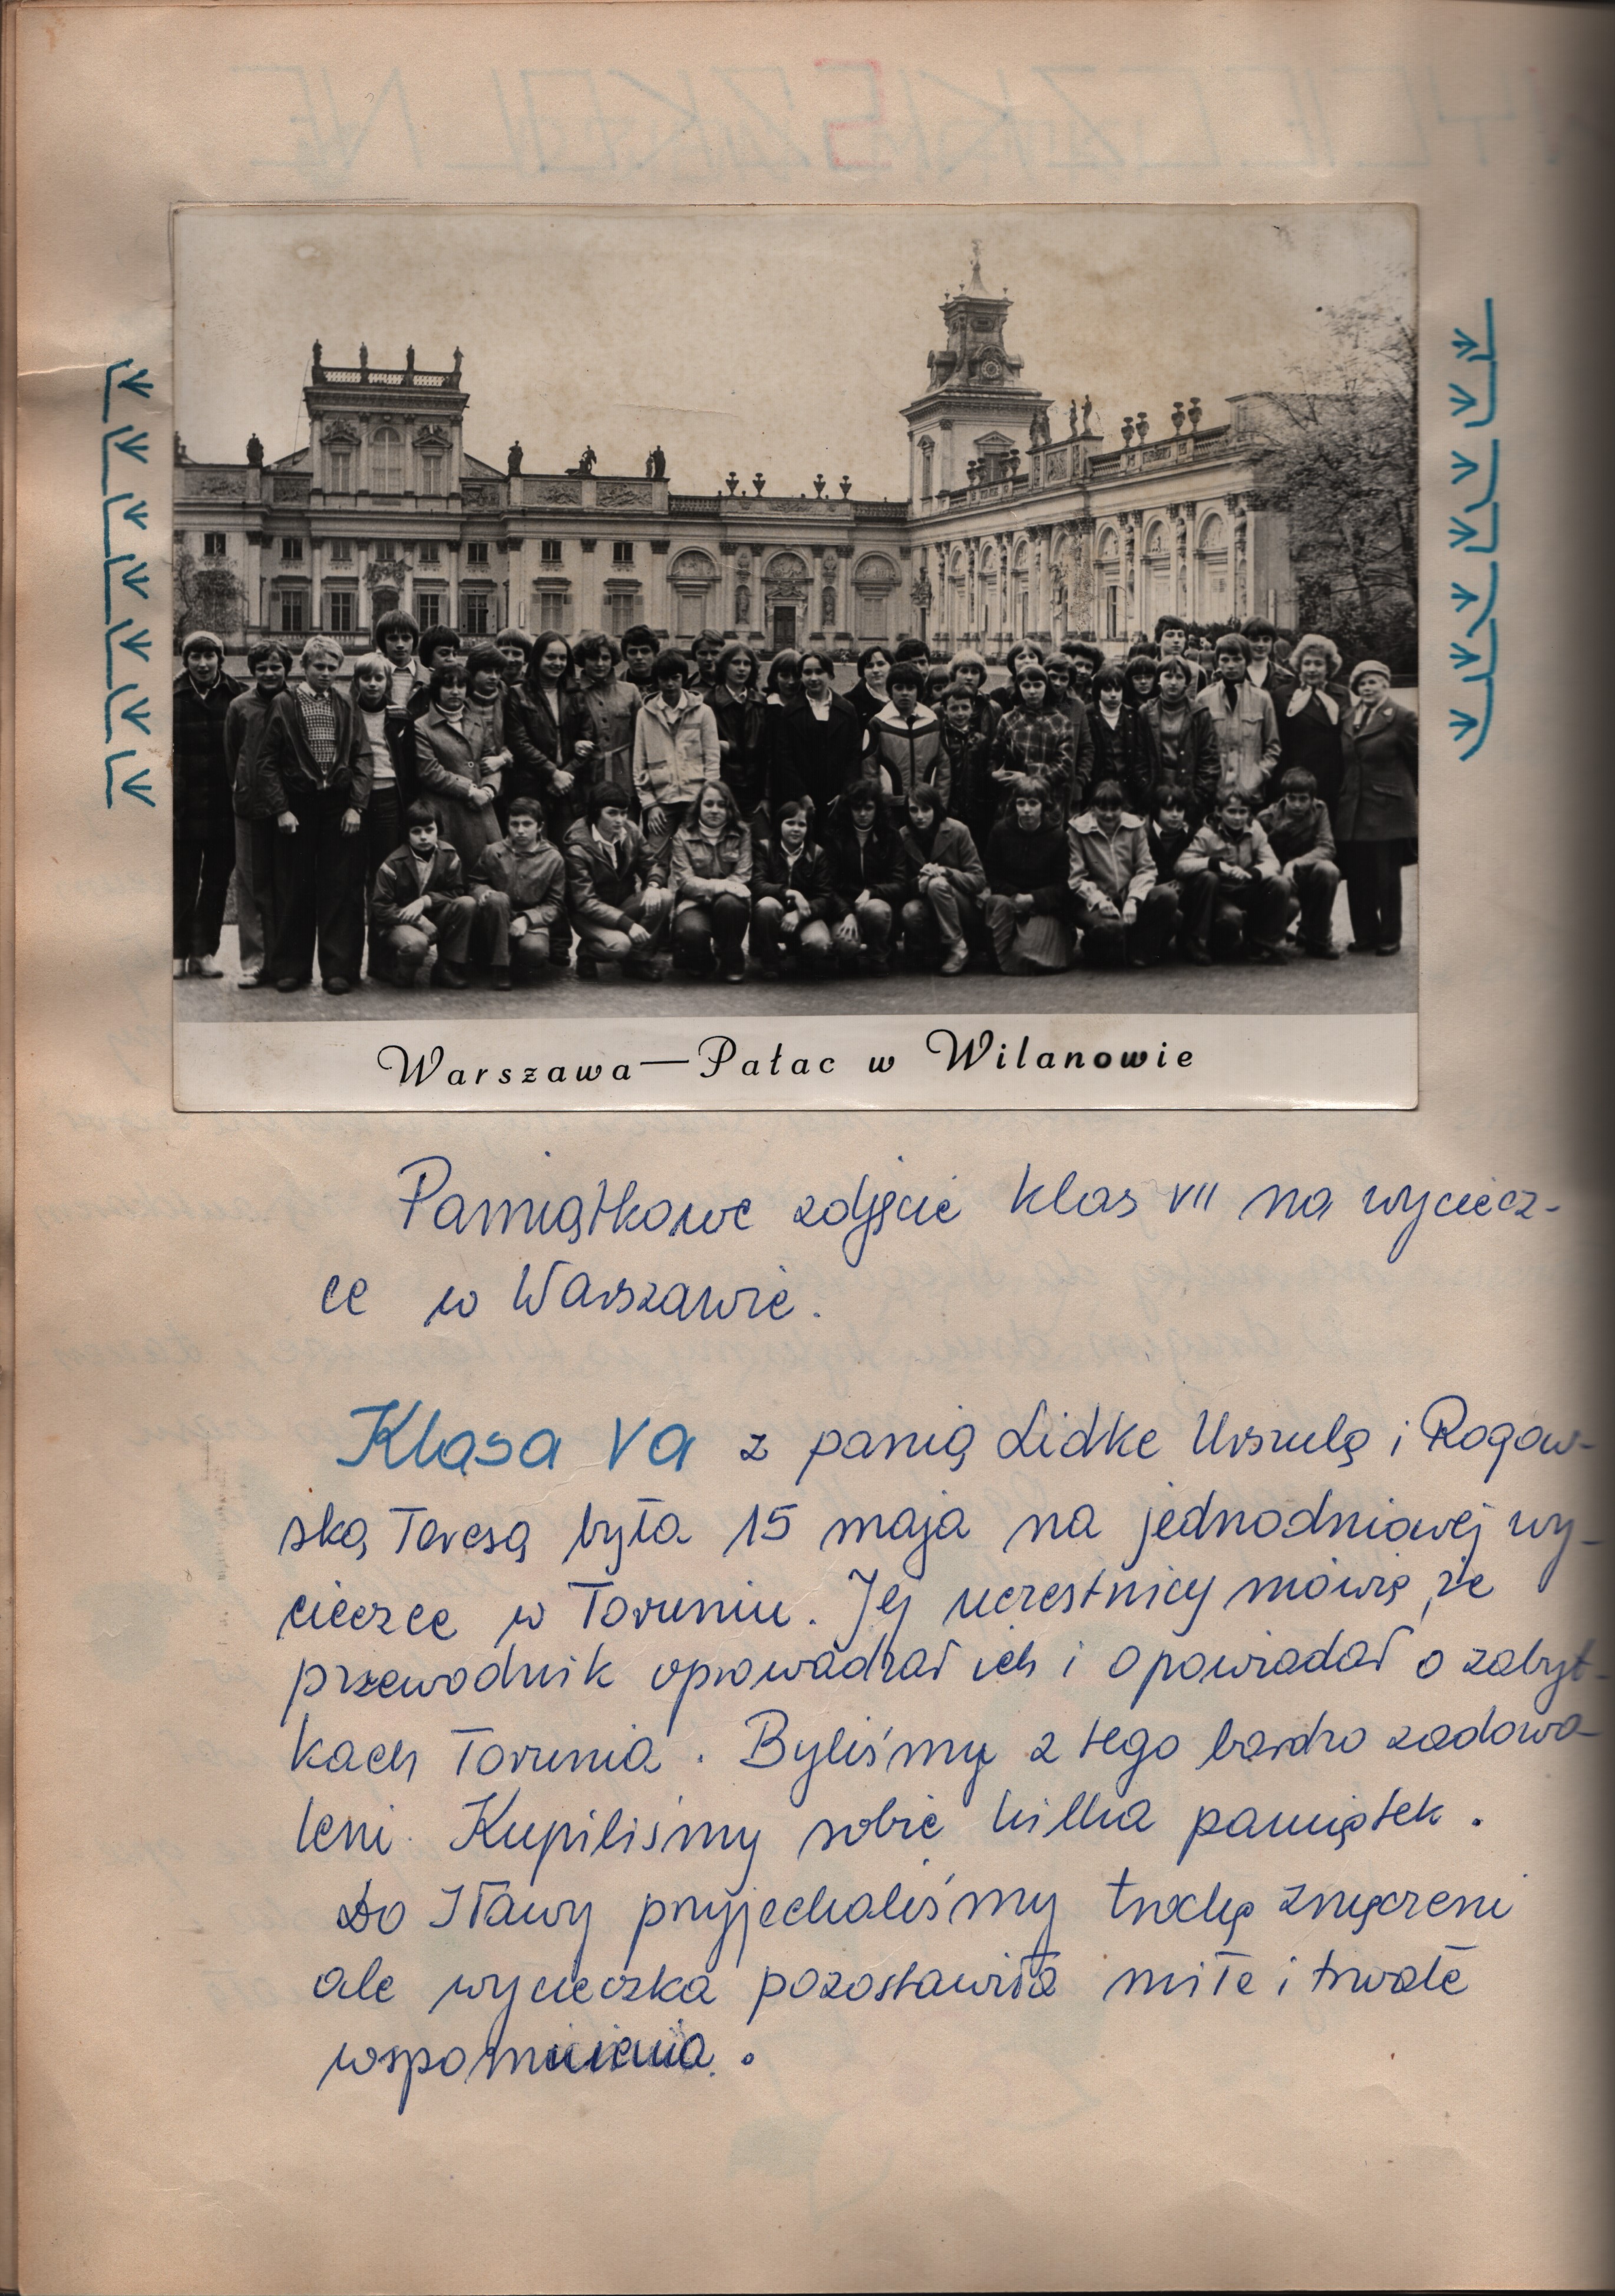 Warszawa — Pałac w Wilanowie
Pamiątkowe zdjęcie klas VII na wyciecz-
ce w Warszawie.
Klasa Va z panią Lidke Urszulą i Rogow-
ską Teresą była 15 maja na jednodniowej wy-
cieczce w Toruniu. Jej uczestnicy mówią, że
przewodnik oprowadzał ich i opowiadał o zabyt-
kach Torunia. Byliśmy z tego bardzo zadowo-
leni. Kupiliśmy sobie kilka pamiątek.
Do Iławy przyjechaliśmy trochę zmęczeni
ale wycieczka pozostawiła miłe i trwałe
wspomnienia.